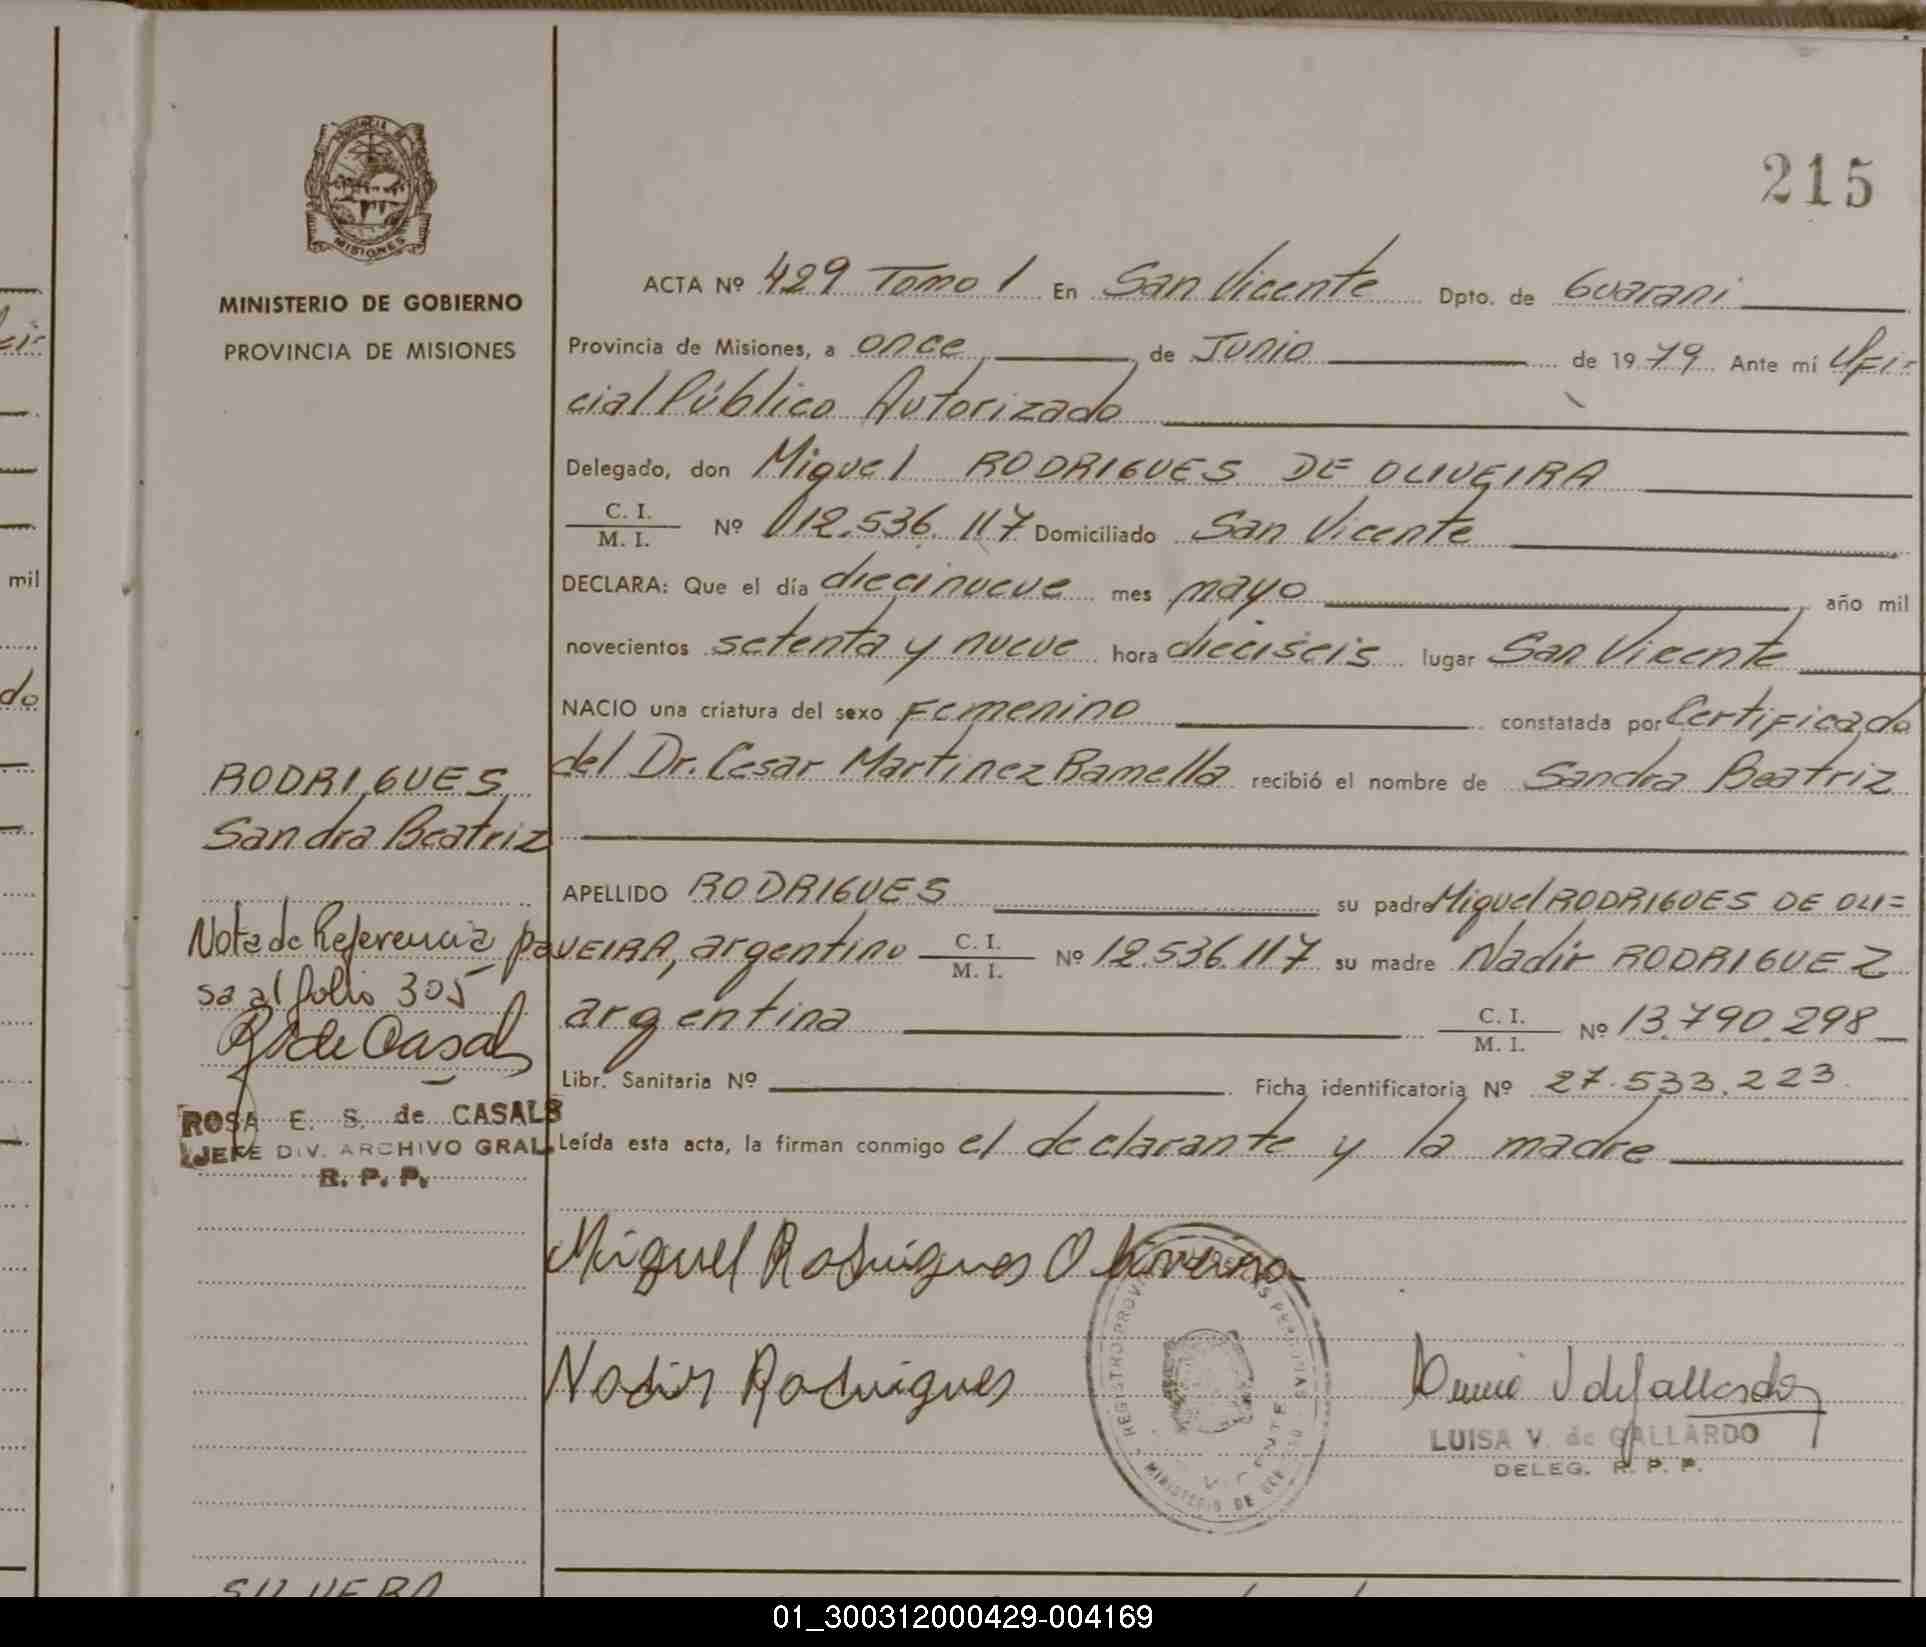 215
PROVINCIA DE
MISIONES
MINISTERIO DE GOBIERNO
PROVINCIA DE MISIONES
ACTA Nº 429 Tomo I En San Vicente Dpto. de Guarani
Provincia de Misiones, a once de Junio de 1979 Ante mí Ofi-
cial Público Autorizado
Delegado, don Miguel RODRIGUES DE OLIVEIRA
C. I.
M. I. Nº 12.536.117 Domiciliado San Vicente
DECLARA: Que el día diecinueve mes mayo año mil
novecientos setenta y nueve hora dieciseis lugar San Vicente
NACIO una criatura del sexo Femenino constatada por Certificado
del Dr. Cesar Martinez Ramella recibió el nombre de Sandra Beatriz
APELLIDO RODRIGUES su padre Miguel RODRIGUES DE OLI=
VEIRA, argentino C. I. M. I. Nº 12.536.117 su madre Nadir RODRIGUEZ
argentina C. I. M. I. Nº 13.790.298
Libr. Sanitaria Nº Ficha identificatoria Nº 27.533.223
Leída esta acta, la firman conmigo el declarante y la madre
RODRIGUES
Sandra Beatriz
Nota de Referencia pa
sa al folio 305
R S de Casals
ROSA E. S. de CASALS
JEFE DIV. ARCHIVO GRAL.
R. P. P.
Miguel Rodrigues Oliveira
Nadir Rodrigues
V. de Gallardo
LUISA V. de GALLARDO
DELEG. R. P. P.
REGISTRO PROV
MINISTERIO DE
mil
do
SILVERA
01_300312000429-004169